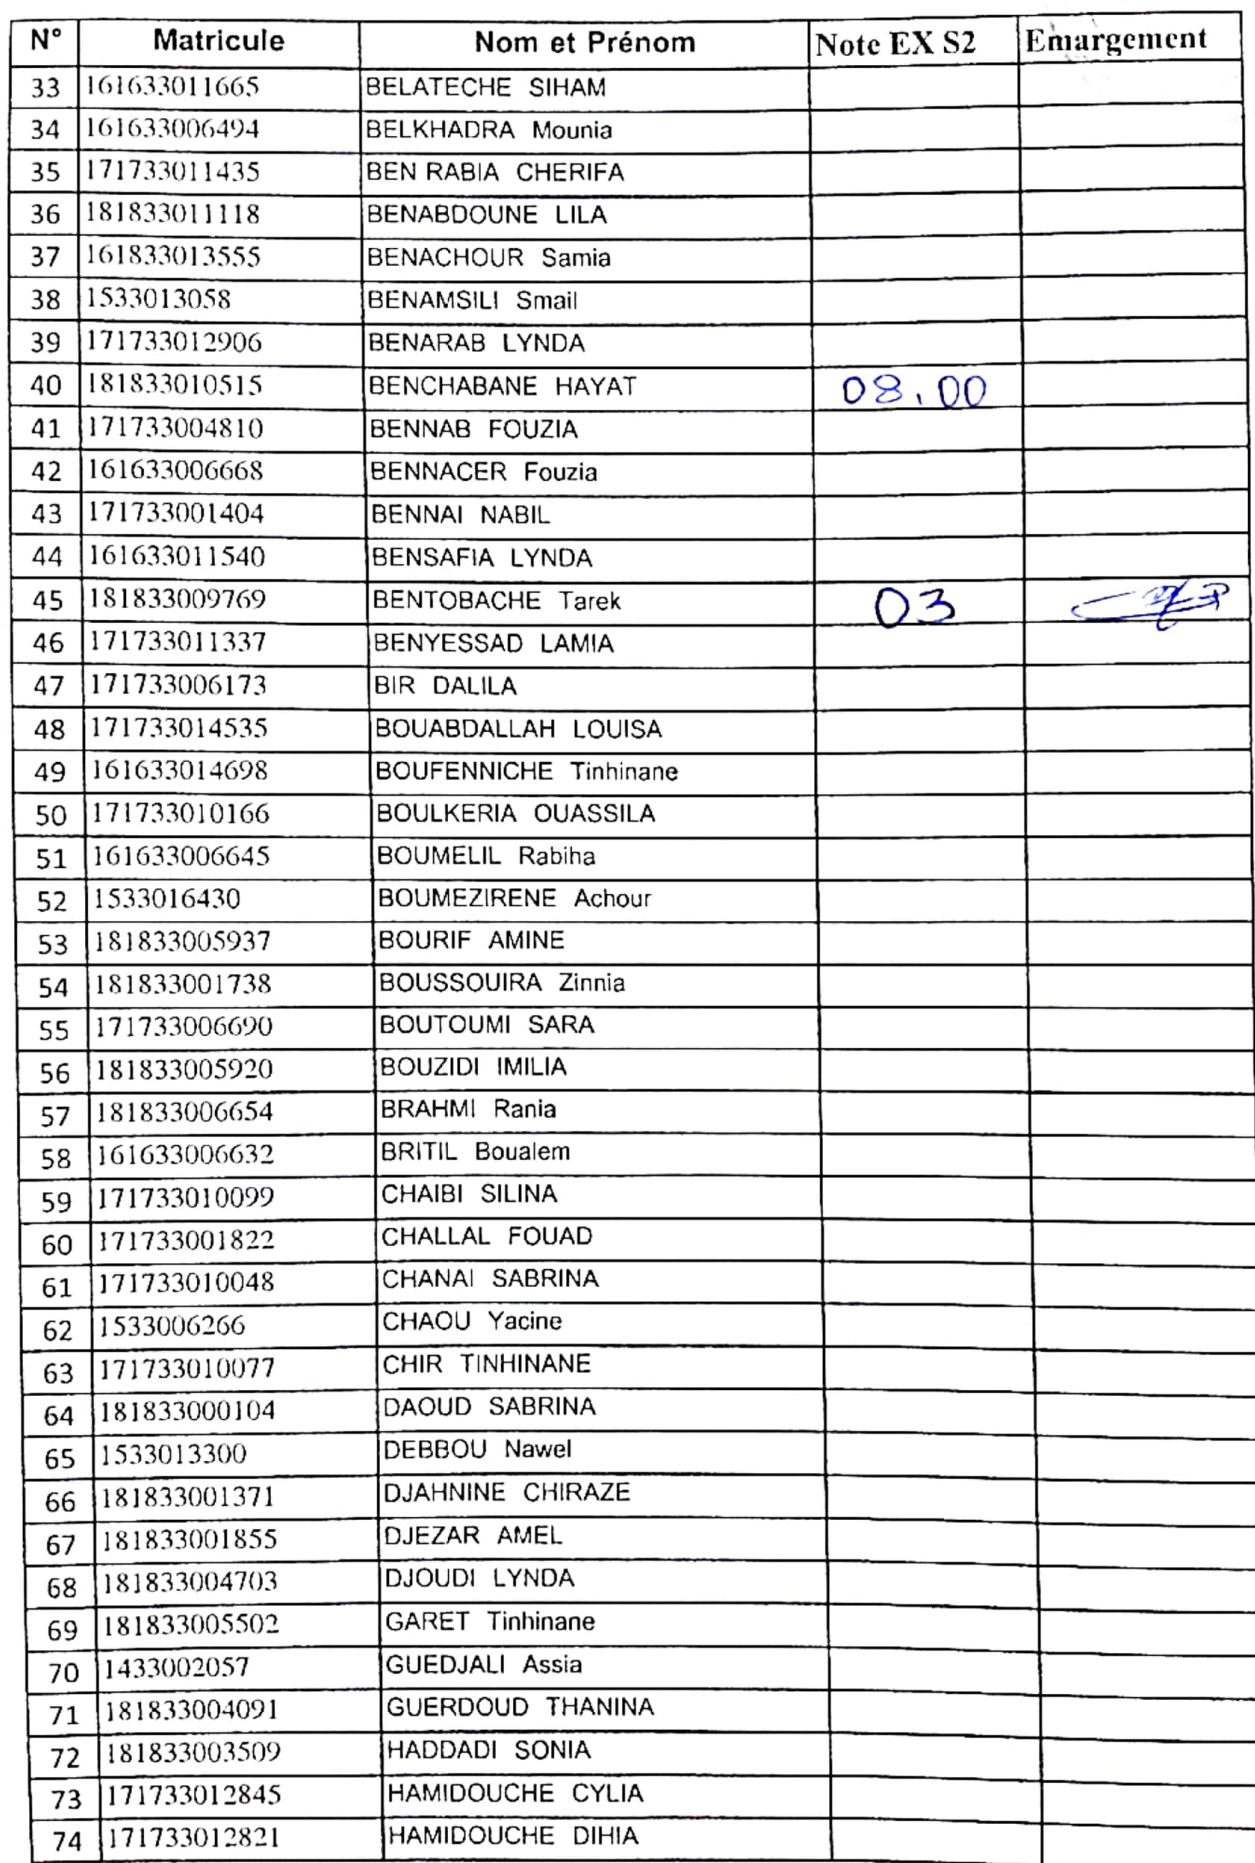 N° Matricule Nom et Prénom Note EX S2 Emargement
33 161633011665 BELATECHE SIHAM
34 161633006494 BELKHADRA Mounia
35 171733011435 BEN RABIA CHERIFA
36 181833011118 BENABDOUNE LILA
37 161833013555 BENACHOUR Samia
38 1533013058 BENAMSILI Smail
39 171733012906 BENARAB LYNDA
40 181833010515 BENCHABANE HAYAT 08,00
41 171733004810 BENNAB FOUZIA
42 161633006668 BENNACER Fouzia
43 171733001404 BENNAI NABIL
44 161633011540 BENSAFIA LYNDA
45 181833009769 BENTOBACHE Tarek 03
46 171733011337 BENYESSAD LAMIA
47 171733006173 BIR DALILA
48 171733014535 BOUABDALLAH LOUISA
49 161633014698 BOUFENNICHE Tinhinane
50 171733010166 BOULKERIA OUASSILA
51 161633006645 BOUMELIL Rabiha
52 1533016430 BOUMEZIRENE Achour
53 181833005937 BOURIF AMINE
54 181833001738 BOUSSOUIRA Zinnia
55 171733006690 BOUTOUMI SARA
56 181833005920 BOUZIDI IMILIA
57 181833006654 BRAHMI Rania
58 161633006632 BRITIL Boualem
59 171733010099 CHAIBI SILINA
60 171733001822 CHALLAL FOUAD
61 171733010048 CHANAI SABRINA
62 1533006266 CHAOU Yacine
63 171733010077 CHIR TINHINANE
64 181833000104 DAOUD SABRINA
65 1533013300 DEBBOU Nawel
66 181833001371 DJAHNINE CHIRAZE
67 181833001855 DJEZAR AMEL
68 181833004703 DJOUDI LYNDA
69 181833005502 GARET Tinhinane
70 1433002057 GUEDJALI Assia
71 181833004091 GUERDOUD THANINA
72 181833003509 HADDADI SONIA
73 171733012845 HAMIDOUCHE CYLIA
74 171733012821 HAMIDOUCHE DIHIA